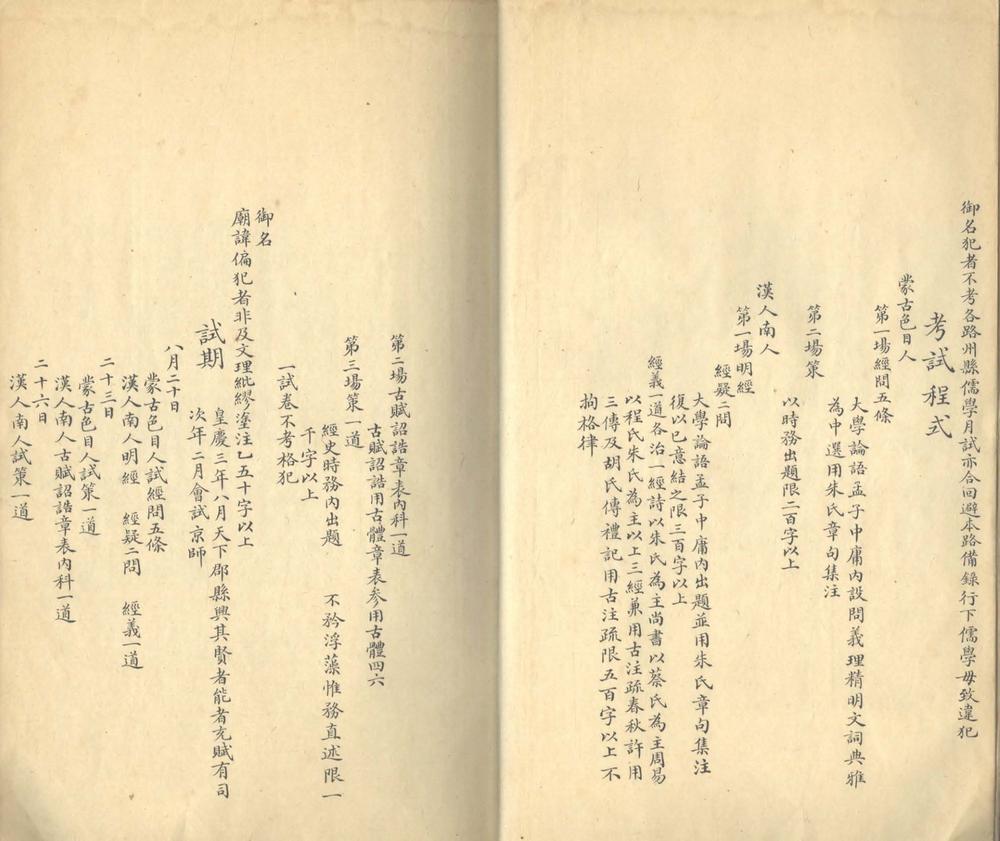 御名犯者不考各路州縣儒學月試亦合回避本路備錄行下儒學毋致違犯
考試程式
蒙古色目人
第一場經問五條
大學論語孟子中庸內設問義理精明文詞典雅
為中選用朱氏章句集注
第二場策
以時務出題限二百字以上
漢人南人
第一場明經
經疑二問
大學論語孟子中庸內出題並用朱氏章句集注
復以已意結之限三百字以上
經義一道各治一經詩以朱氏為主尚書以蔡氏為主周易
以程氏朱氏為主以上三經兼用古注疏春秋許用
三傳及胡氏傳禮記用古注疏限五百字以上不
拘格律
第二場古賦詔誥章表內科一道
古賦詔誥用古體章表參用古體四六
第三場策一道
經史時務內出題　不矜浮藻惟務直述限一
千字以上
一試卷不考格犯
御名
廟諱偏犯者非及文理紕繆塗注乙五十字以上
試期
皇慶三年八月天下郡縣興其賢者能者充賦有司
次年二月會試京師
八月二十日
蒙古色目人試經問五條
漢人南人明經　經疑二問　經義一道
二十三日
蒙古色目人試策一道
漢人南人古賦詔誥章表內科一道
二十六日
漢人南人試策一道